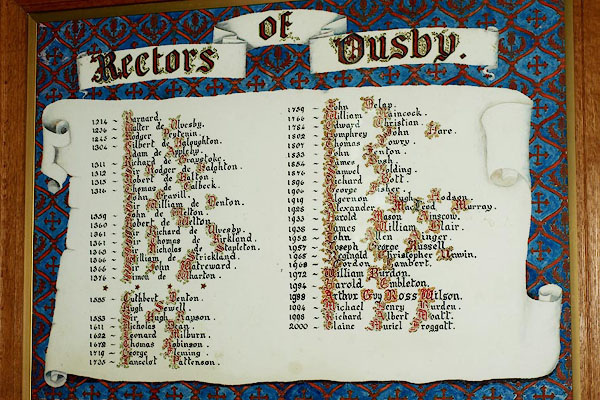 Rectors of Ousby.
1214 ~ Barnard.
1236 ~ Walter de Ulvesby.
1245 ~ Rodger Peytenin.
1304 ~ Gilbert de Haloughton.
Adam de Appleby.
1311 ~ Richard de Graystoke.
1312 ~ Sir Rodger de Halghton.
1315 ~ Robert de Halton.
1316 ~ Thomas de Calbeck.
John Cravill.
Sir William de Denton.
1359 ~ John de Melton.
1360 ~ Robert de Welton.
1361 ~ Sir Richard de Ulvesby.
1361 ~ Sir Thomas de Kirkland.
1360 ~ Sir Nicholas de Stapleton.
William de Strickland.
1366 ~ Sir John Katreward.
1376 ~ Simon de Wharton.
1535 ~ Cuthbert Fenton.
Hugh Sewell
1583 ~ Sir Hugh Rayson.
1611 ~ Nicholas Dean.
1622 ~ Leonard Milburn.
1672 ~ Thomas Robinson.
1719 ~ George Fleming.
1735 ~ Lancelot Pattenson.
1759 ~ John Delap.
1766 ~ William Raincock.
1784 ~ Edward Christian.
1802 ~ Humphrey John Hare.
1807 ~ Thomas Lowry.
1833 ~ John Fenton.
1854 ~ James Rush.
1876 ~ Samuel Golding.
1896 ~ Richard Bott.
1906 ~ George Fisher.
1919 ~ Algernon Hodson.
1928 ~ Alexander McLeod Murray.
1933 ~ Harold Mason Ainscow.
1938 ~ James William Blair.
1952 ~ John Allen Winger.
1957 ~ Joseph George Russell.
1965 ~ Reginald Christopher Unwin.
1968 ~ Gordon Lambert.
1972 ~ William Purdon.
1984 ~ Harold Embleton.
1988 ~ Arthur Guy Ross Wilson.
Michael Henry Burden.
Richard Albert
2000 ~ Elaine Muriel Froggatt.